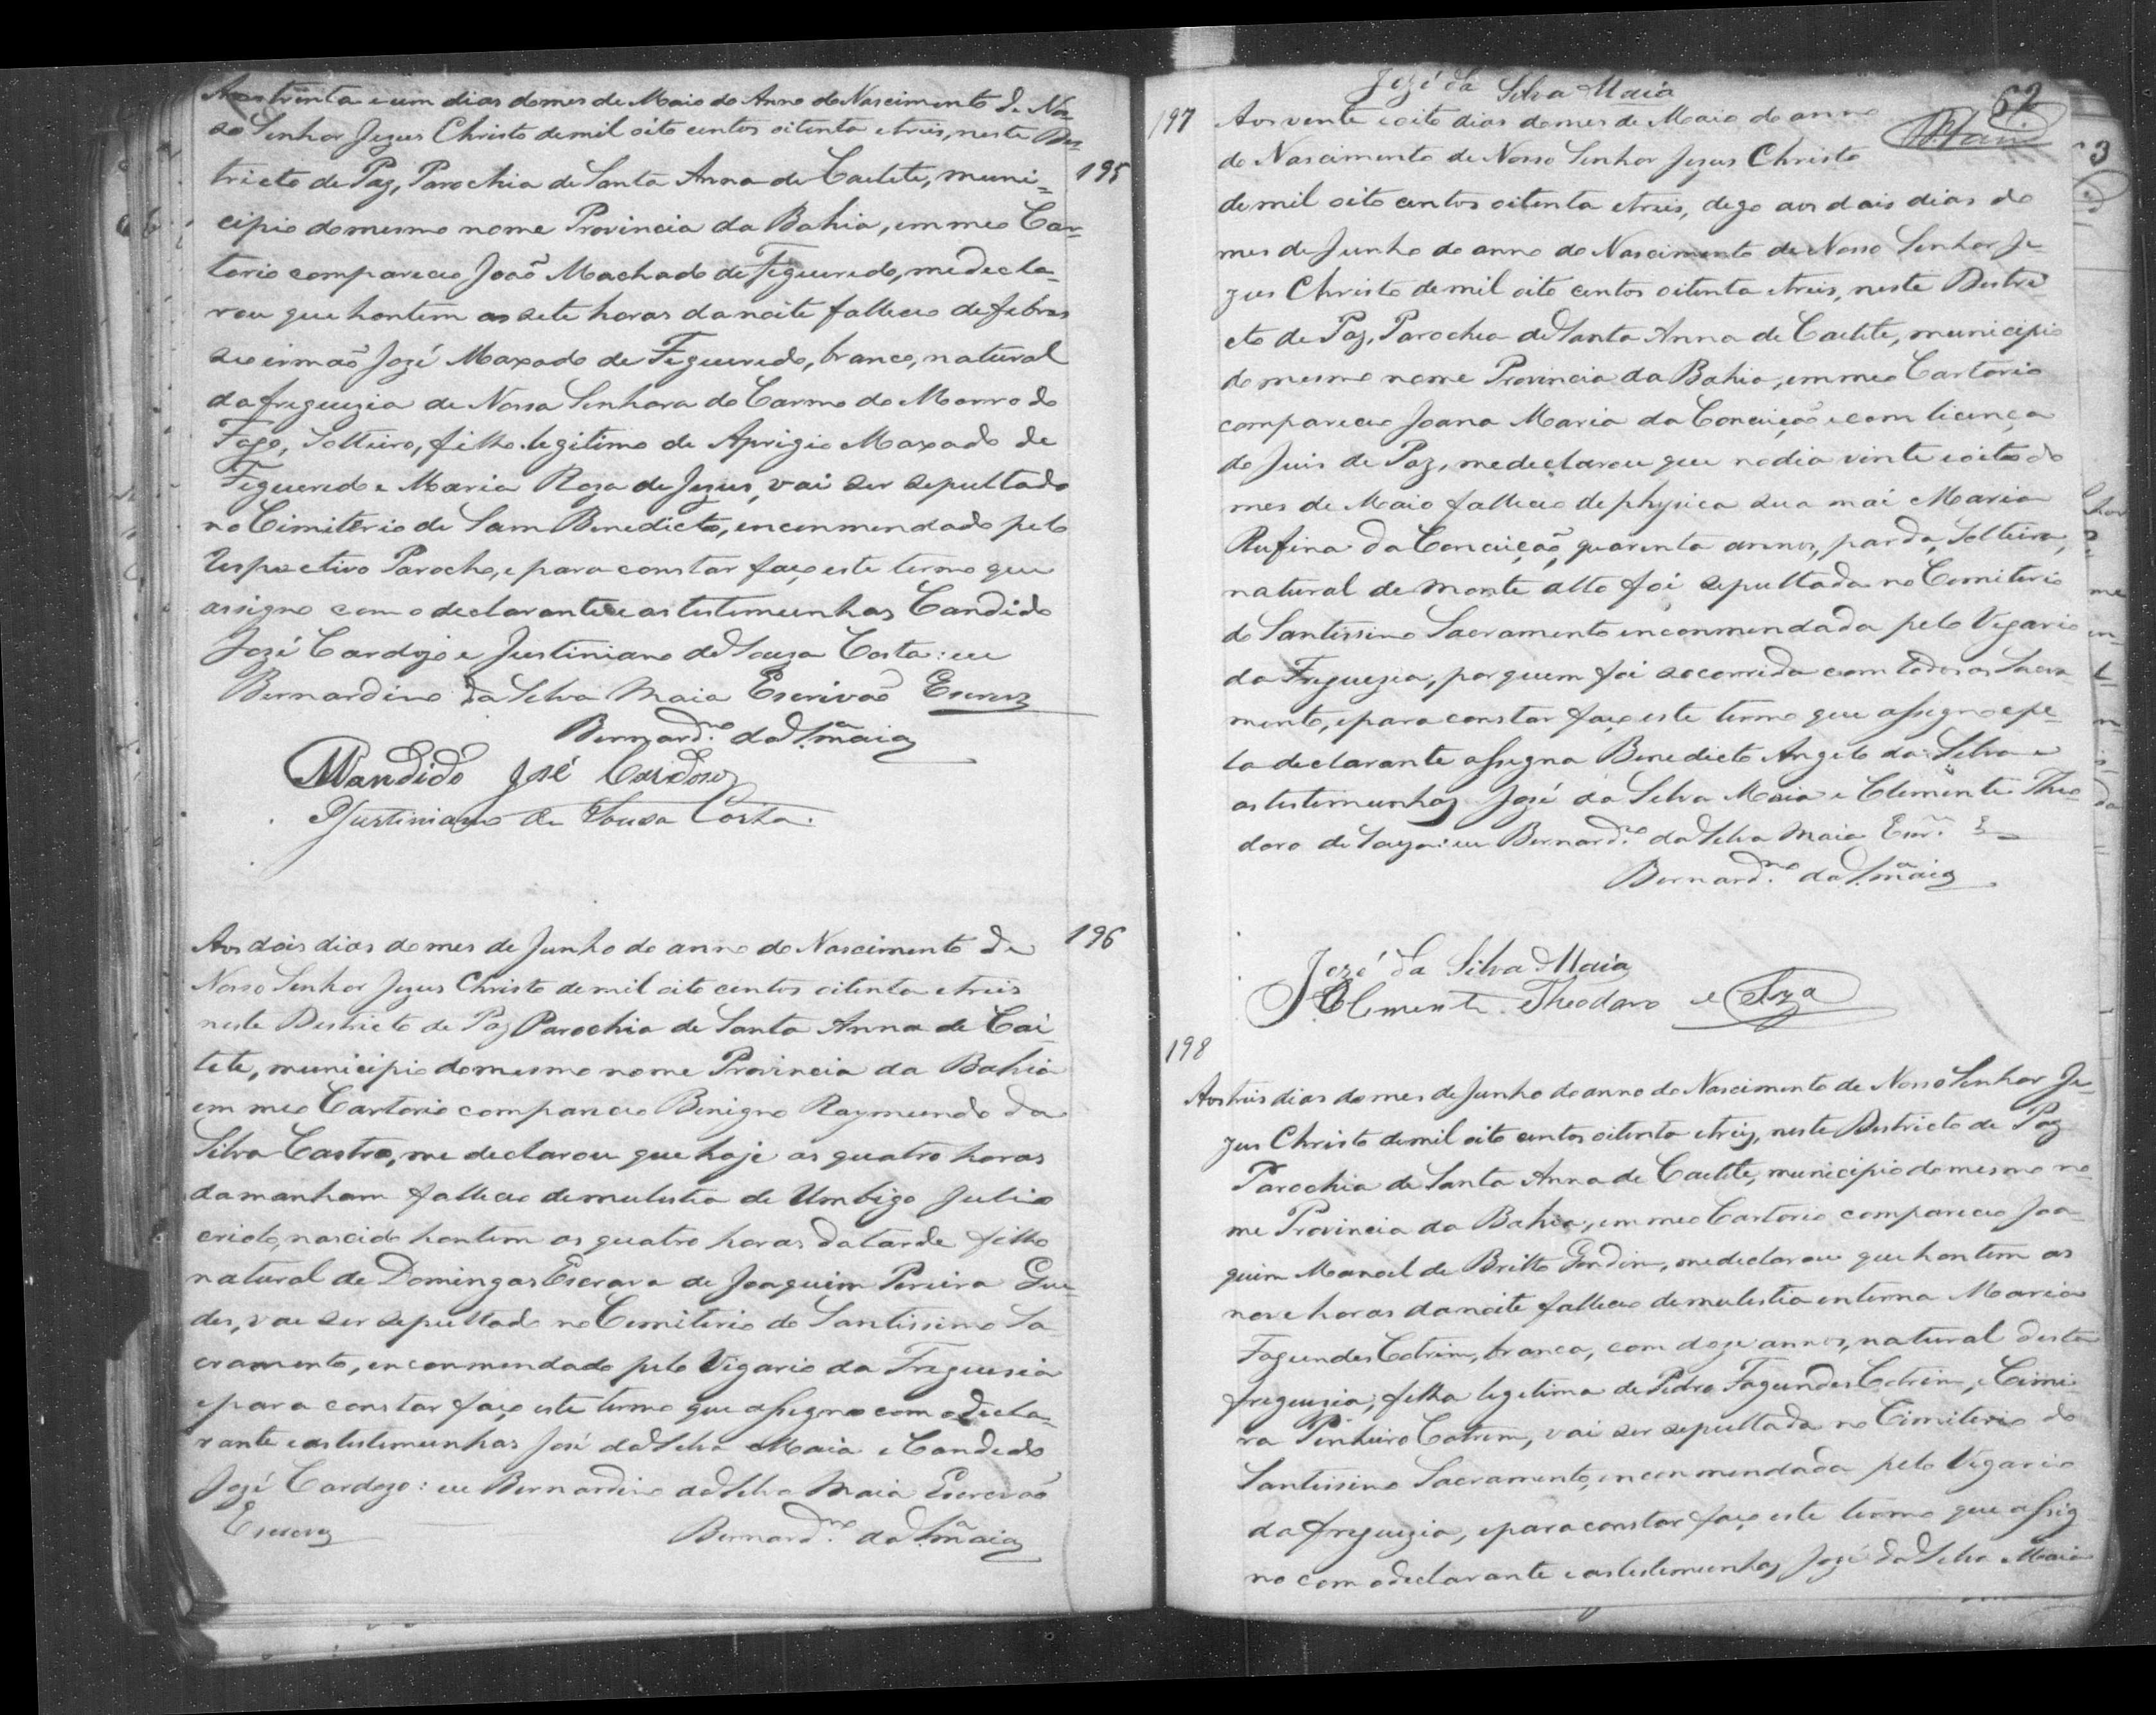 Aos trinta e um dias do mes de Maio do Anno do Nascimento de Nos-
so Senhor Jezus Christo de mil oito centos oitenta e treis, neste Des-
tricto de Paz, Parochia de Santa Anna de Caetete, muni-
195
cipio do mesmo nome Provincia da Bahia, em meo Car-
torio compareceo João Machado de Figueredo, me decla-
rou que hontem as sete horas da noite falleceo de febres
seo irmão Jozé Maxado de Figueredo, branco, natural
da freguezia de Nossa Senhora do Carmo do Morro do
Fogo, Solteiro, filho legitimo de Aprigio Maxado de
Figueredo e Maria Roza de Jezus, vai ser sepultado
no Cimiterio de Sam Benedicto, enconmendado pelo
respectivo Parocho, e para constar faço este termo que
assigno com o declarante e as testemunhas Candido
Jozé Cardozo e Justiniano de Souza Costa: eu
Bernardino da Silva Maia Escrivão Escrevy
Bernard.no da S.a Maia
Candido José Cardoso
Justiniano de Sousa Costa.
196
Aos dois dias do mes de Junho do anno do Nascimento de
Nosso Senhor Jezus Christo de mil oito centos oitenta e treis
neste Destricto de Paz Parochia de Santa Anna de Cai-
tete, municipio do mesmo nome Provincia da Bahia
em meo Cartorio compareceo Benigno Raymundo da
Silva Castro, me declarou que hoje as quatro horas
da manham falleceo de mulestia de Umbigo Julio
criolo, nascido hontem as quatro horas da tarde filho
natural de Domingas Escrava de Joaquim Pereira Gue-
des, vae ser sepultado no Cemiterio do Santissimo Sa-
cramento, enconmendado pelo Vigario da Freguesia
e para constar faço este termo que assigno com o decla-
rante e as testemunhas José da Silva Maia e Candido
Jozé Cardozo: eu Bernardino da Silva Maia Escrevão
Escrevy Bernard.no da S.a Maia
Jozé da Silva Maia
62
197 Aos vente e oito dias do mes de Maio do anno
do Nascimento de Nosso Senhor Jezus Christo
de mil oito centos oitenta e treis, dego aos dois dias do
mes de Junho do anno do Nascimento de Nosso Senhor Je-
zus Christo de mil oito centos oitenta e treis, neste Destri-
cto de Paz, Parochia de Santa Anna de Caetete, municipio
do mesmo nome Provincia da Bahia, em meo Cartorio
compareceo Joana Maria da Conceição e com licença
do Juis de Paz, me declarou que no dia vinte e oito do
mes de Maio falleceo de physica sua mai Maria
Rufina da Conceição, quarenta annos, parda, Solteira,
natural de Monte alto foi sepultada no Cemiterio
do Santissimo Sacramento enconmendada pelo Vigario
da Freguezia, por quem foi socorrida com todos os Sacra-
mento, e para constar faço este termo que assigno e pe-
la declarante assigna Benedicto Angelo da Silva e
as testemunhas José da Silva Maia e Clemente Theo
doro de Souza: eu Bernard.no da Silva Maia Escr.am E
Bernard.no da S.a Maia
Jozé da Silva Maia
Clemente Theodoro e Sza
198
Aos treis dias do mes de Junho do anno do Nascimento de Nosso Senhor Je-
zus Christo de mil oito centos oitenta e treis, neste Destricto de Paz
Parochia de Santa Anna de Caetete, municipio do mesmo no-
me Provincia da Bahia, em meo Cartorio compareceo Joa-
quim Manoel de Britto Gondim, me declarou que hontem as
nove horas da noite falleceo de mulestia enterna Maria
Fagundes Cotrim, branca, com doze annos, natural desta
freguezia, filha legitima de Pedro Fagundes Cotrim, e
ra Pinheiro Cotrim, vai ser sepultada no Cimiterio do
Santissimo Sacramento, enconmendada pelo Vigario
da freguezia, e para constar faço este termo que assig
no com o declarante e as testemunhas Jozé da Silva Maia